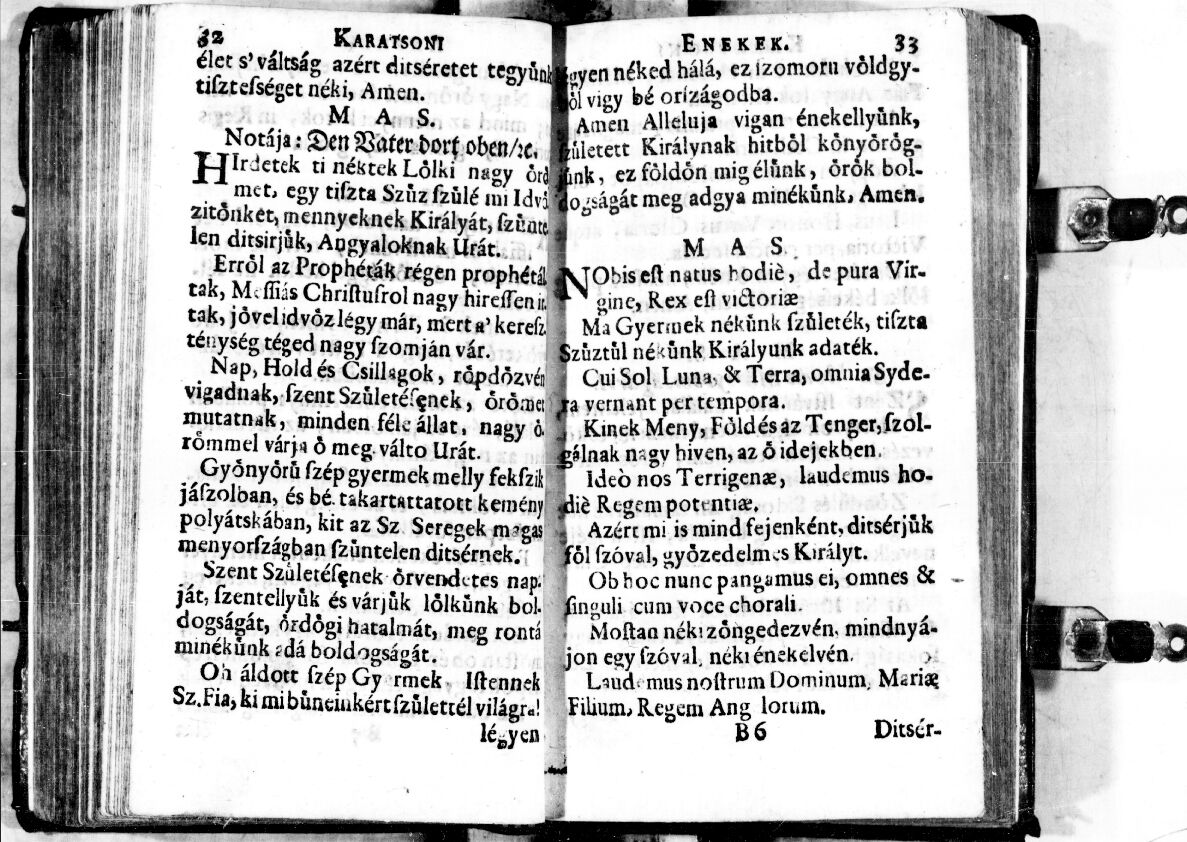 32 KARATSONI
élet s' váltság azért ditséretet tegyu̇nk
tiſzteſséget néki, Amen.
M A S.
Notája: Den Vater dort oben/ꝛc.
HIrdetek ti néktek Lo̊lki nagy o̊rö
met, egy tiſzta Szu̇z ſzu̇lé mi Idvö
zito̊nket, mennyeknek Királyát, ſzu̇nte
len ditsirju̇k, Angyaloknak Urát.
Erro̊l az Prophéták régen prophétál
tak, Meſſiás Chriſtuſrol nagy hireſſen ir
tak, jo̊vel idvo̊zlégy már, mert a' kereſz
ténység téged nagy ſzomján vár.
Nap, Hold és Csillagok, ro̊pdo̊zvén
vigadnak, ſzent Születéſęnek, o̊ro̊met
mutatnak, minden féle állat, nagy o̊
ro̊mmel várja o̊ meg váltó Urát.
Gyo̊nyo̊ru̇ ſzép gyermek melly fekſzik
jáſzolban, és bé takartattatott kemény
polyátskában, kit az Sz. Seregek magas
menyorſzágban ſzu̇ntelen ditsérnek.
Szent Születéſęnek o̊rvendetes nap-
ját, ſzentellyu̇k és várju̇k lo̊lku̇nk bol-
dogságát, o̊rdo̊gi hatalmát, meg rontá
minéku̇nk adá boldogságát.
Oh áldott ſzép Gyermek, Iſtennek
Sz. Fia, ki mi bu̇neinkért ſzu̇lettél világra!
légyen
ENEKEK. 33
légyen néked hálá, ez ſzomoru vo̊ldgy-
bo̊l vigy bé orſzágodba.
Amen Alleluja vigan énekellyu̇nk,
ſzu̇letett Királynak hitbo̊l ko̊nyo̊ro̊g-
ju̇nk, ez fo̊ldo̊n mig élu̇nk, o̊ro̊k bol-
dogságát meg adgya minéku̇nk, Amen.
M A S.
NObis eſt natus hodiè, de pura Vir-
gine, Rex eſt victoriæ
Ma Gyermek néku̇nk ſzu̇leték, tiſzta
Szu̇ztu̇l néku̇nk Királyunk adaték.
Cui Sol Luna, & Terra, omnia Syde-
ra vernant per tempora.
Kinek Meny, Fo̊ld és az Tęnger, ſzol-
gálnak nagy hiven, az o̊ idejekben.
Ideò nos Terrigenæ, laudemus ho-
diè Regem potentiæ.
Azért mi is mind fejenként, ditsérju̇k
fo̊l ſzóval, gyo̊zedelmes Királyt.
Ob hoc nunc pangamus ei, omnes &
ſinguli cum voce chorali.
Moſtan néki zo̊ngedezvén, mindnyá-
jon egy ſzóval, néki énekelvén.
Laudemus noſtrum Dominum, Mariæ
Filium, Regem Angelorum.
B 6 Ditsér-